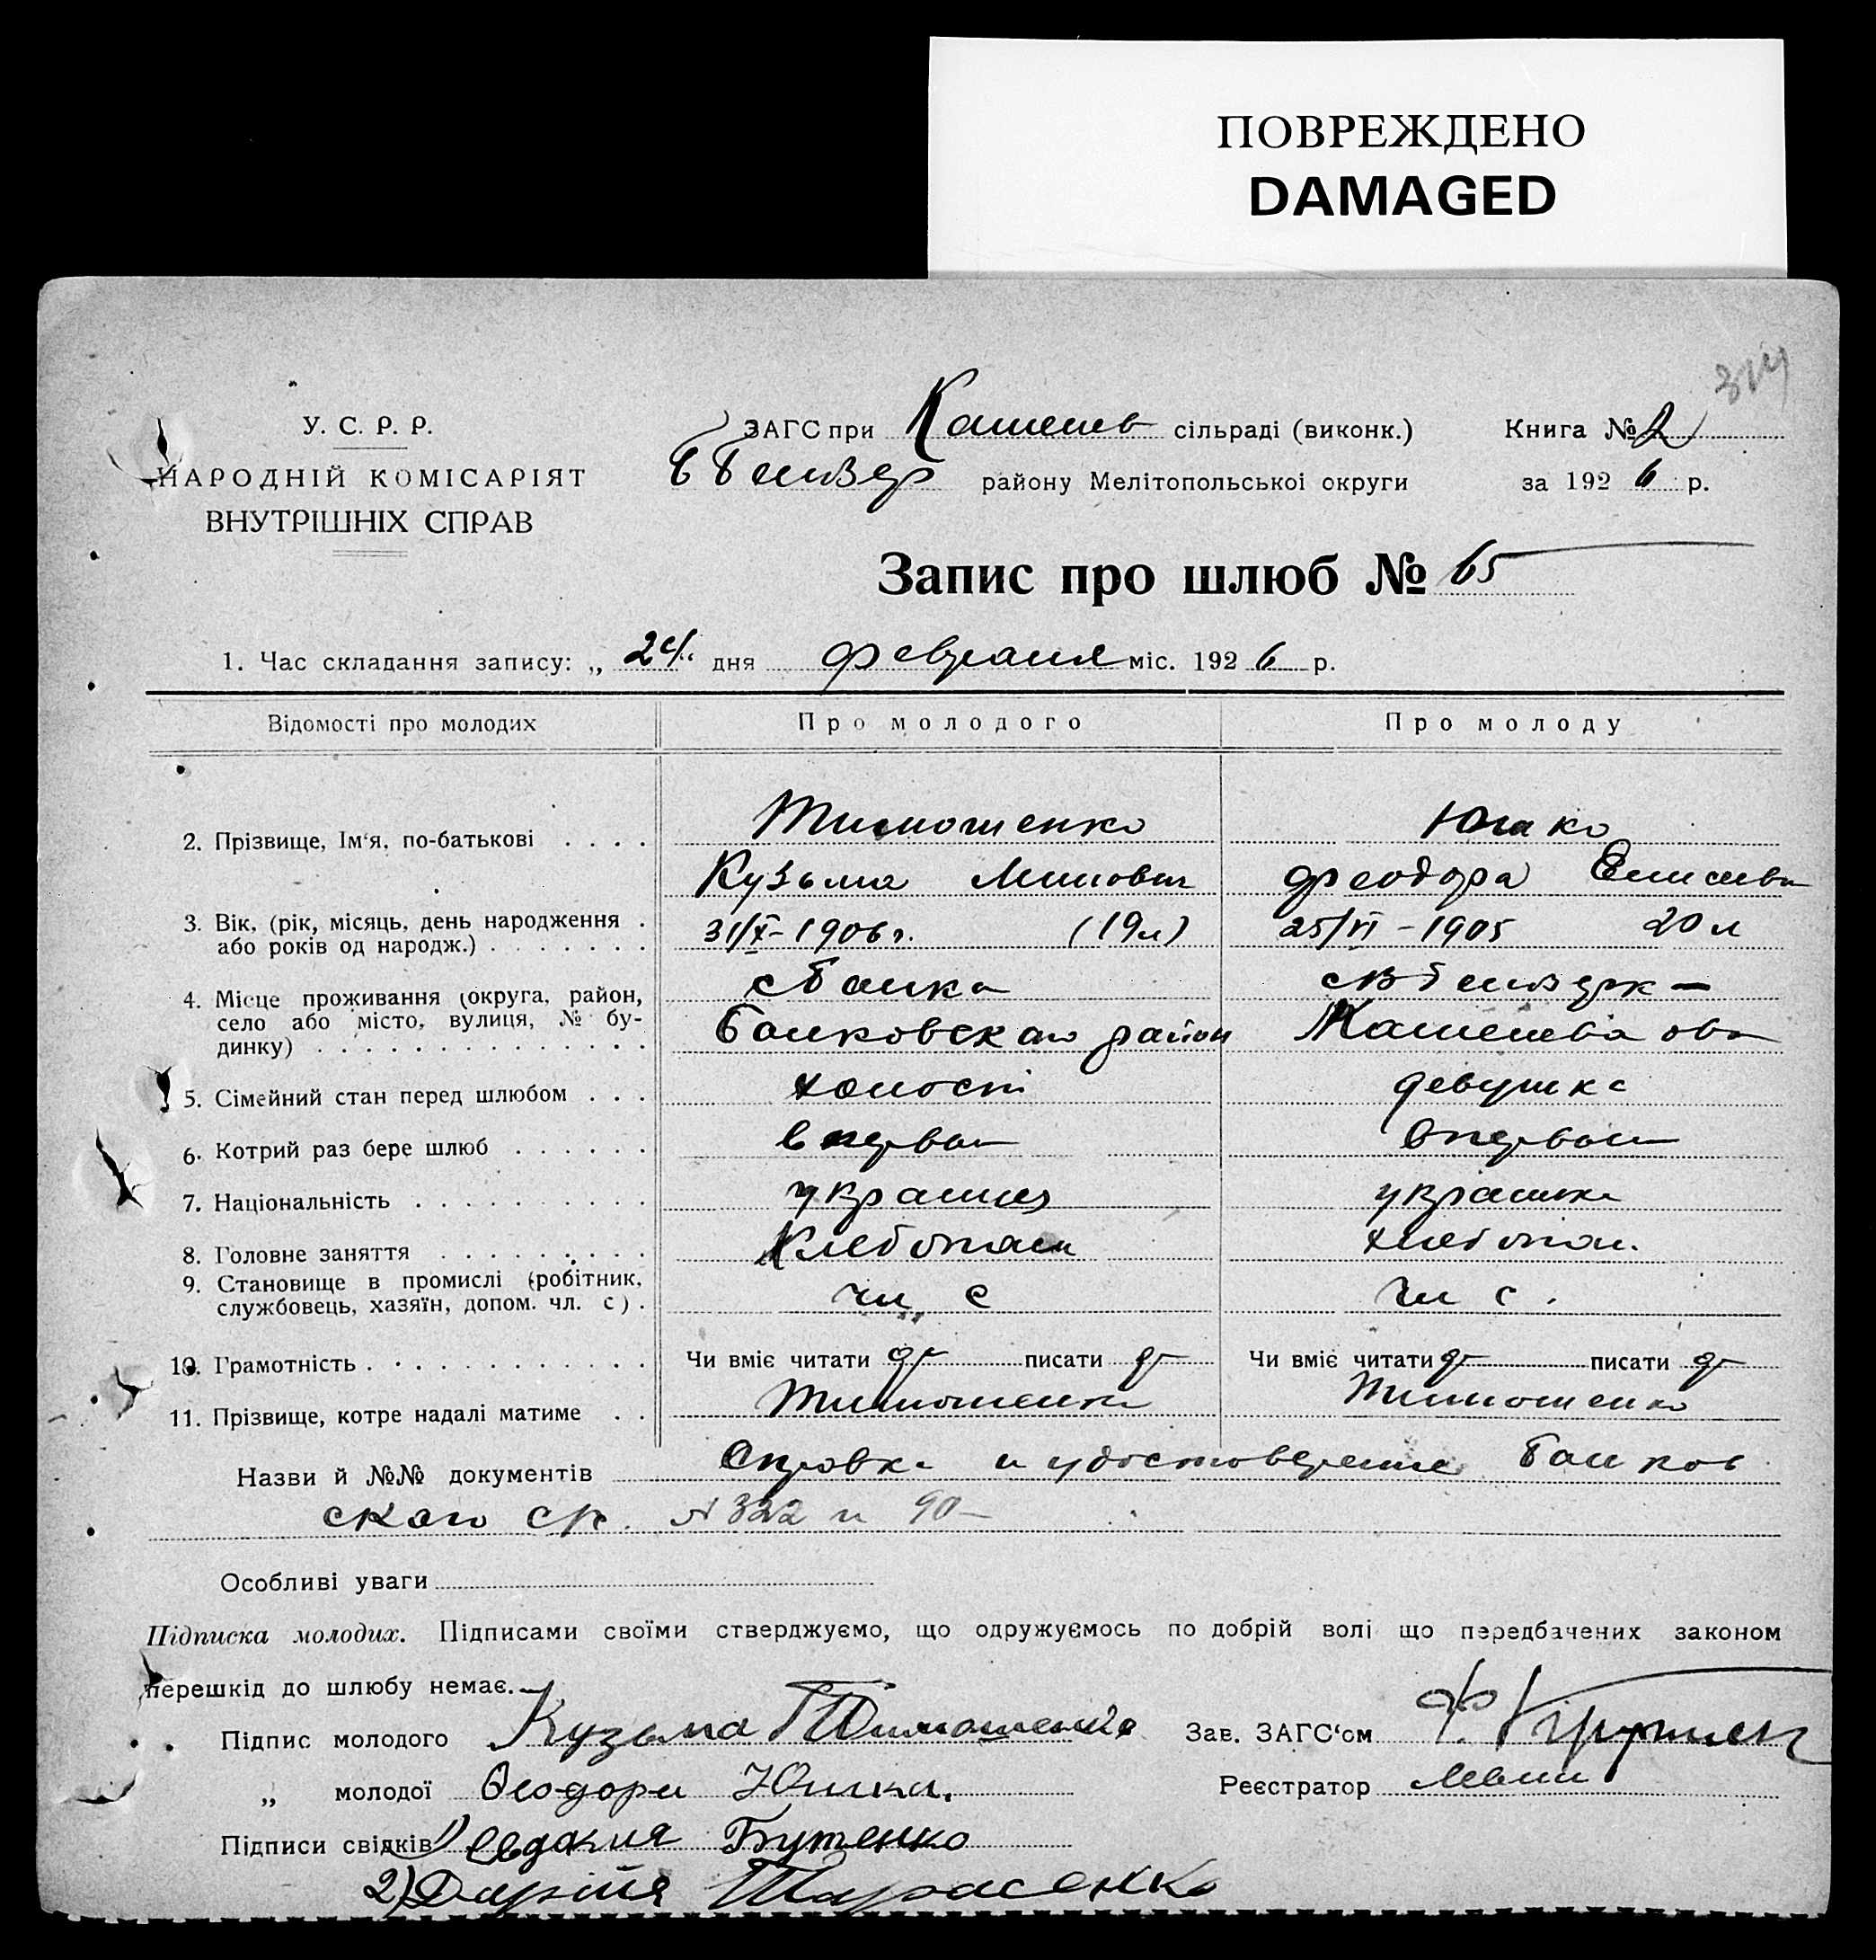 ПОВРЕЖДЕНО
DAMAGED
314
У. С. Р. Р.
НАРОДНІЙ КОМІСАРІЯТ
ВНУТРІШНІХ СПРАВ
ЗАГС при сільраді (виконк.) Книга № 2
району Мелітопольської округи за 1926 р.
Запис про шлюб № 65
1. Час складання запису: „24“ дня февраля міс. 1926 р.
Відомості про молодих Про молодого Про молоду
2. Прізвище, Ім‘я, по-батькові . . . . Тимошенко Юшко
Кузьма Феодора
3. Вік, (рік, місяць, день народження . або років од народж.) . . . . . . . 31/X-1906 г. (19 л) 25/VI-1905 20 л
4. Місце проживання (округа, район, село або місто, вулиця, № будинку) . . . . . . . . . . . . . с Балка
Балковского район
5. Сімейний стан перед шлюбом . . . холост девушка
6. Котрий раз бере шлюб . . . . . . первый первый
7. Національність . . . . . . . . . украинец украинка
8. Головне заняття . . . . . . . . . Хлебопаш хлебопаш.
9. Становище в промислі (робітник, службовець, хазяїн, допом. чл. с) . чл. с чл с.
10. Грамотність . . . . . . . . . . . . Чи вміє читати да писати да Чи вміє читати да писати да
11. Прізвище, котре надалі матиме . . Тимошенко Тимошенко
Назви й №№ документів Справка и удостоверение Балков
ского с/с. № 322 и 90
Особливі уваги
Підписка молодих. Підписами своїми стверджуємо, що одружуємось по добрій волі що передбачених законом
перешкід до шлюбу немає.
Підпис молодого Кузьма Тимошенко Зав. ЗАГС‘ом
„ молодої Феодора Юшко. Реєстратор
Підписи свідків 1) Евдокия Бутенко
2) Дарія Тарасенко